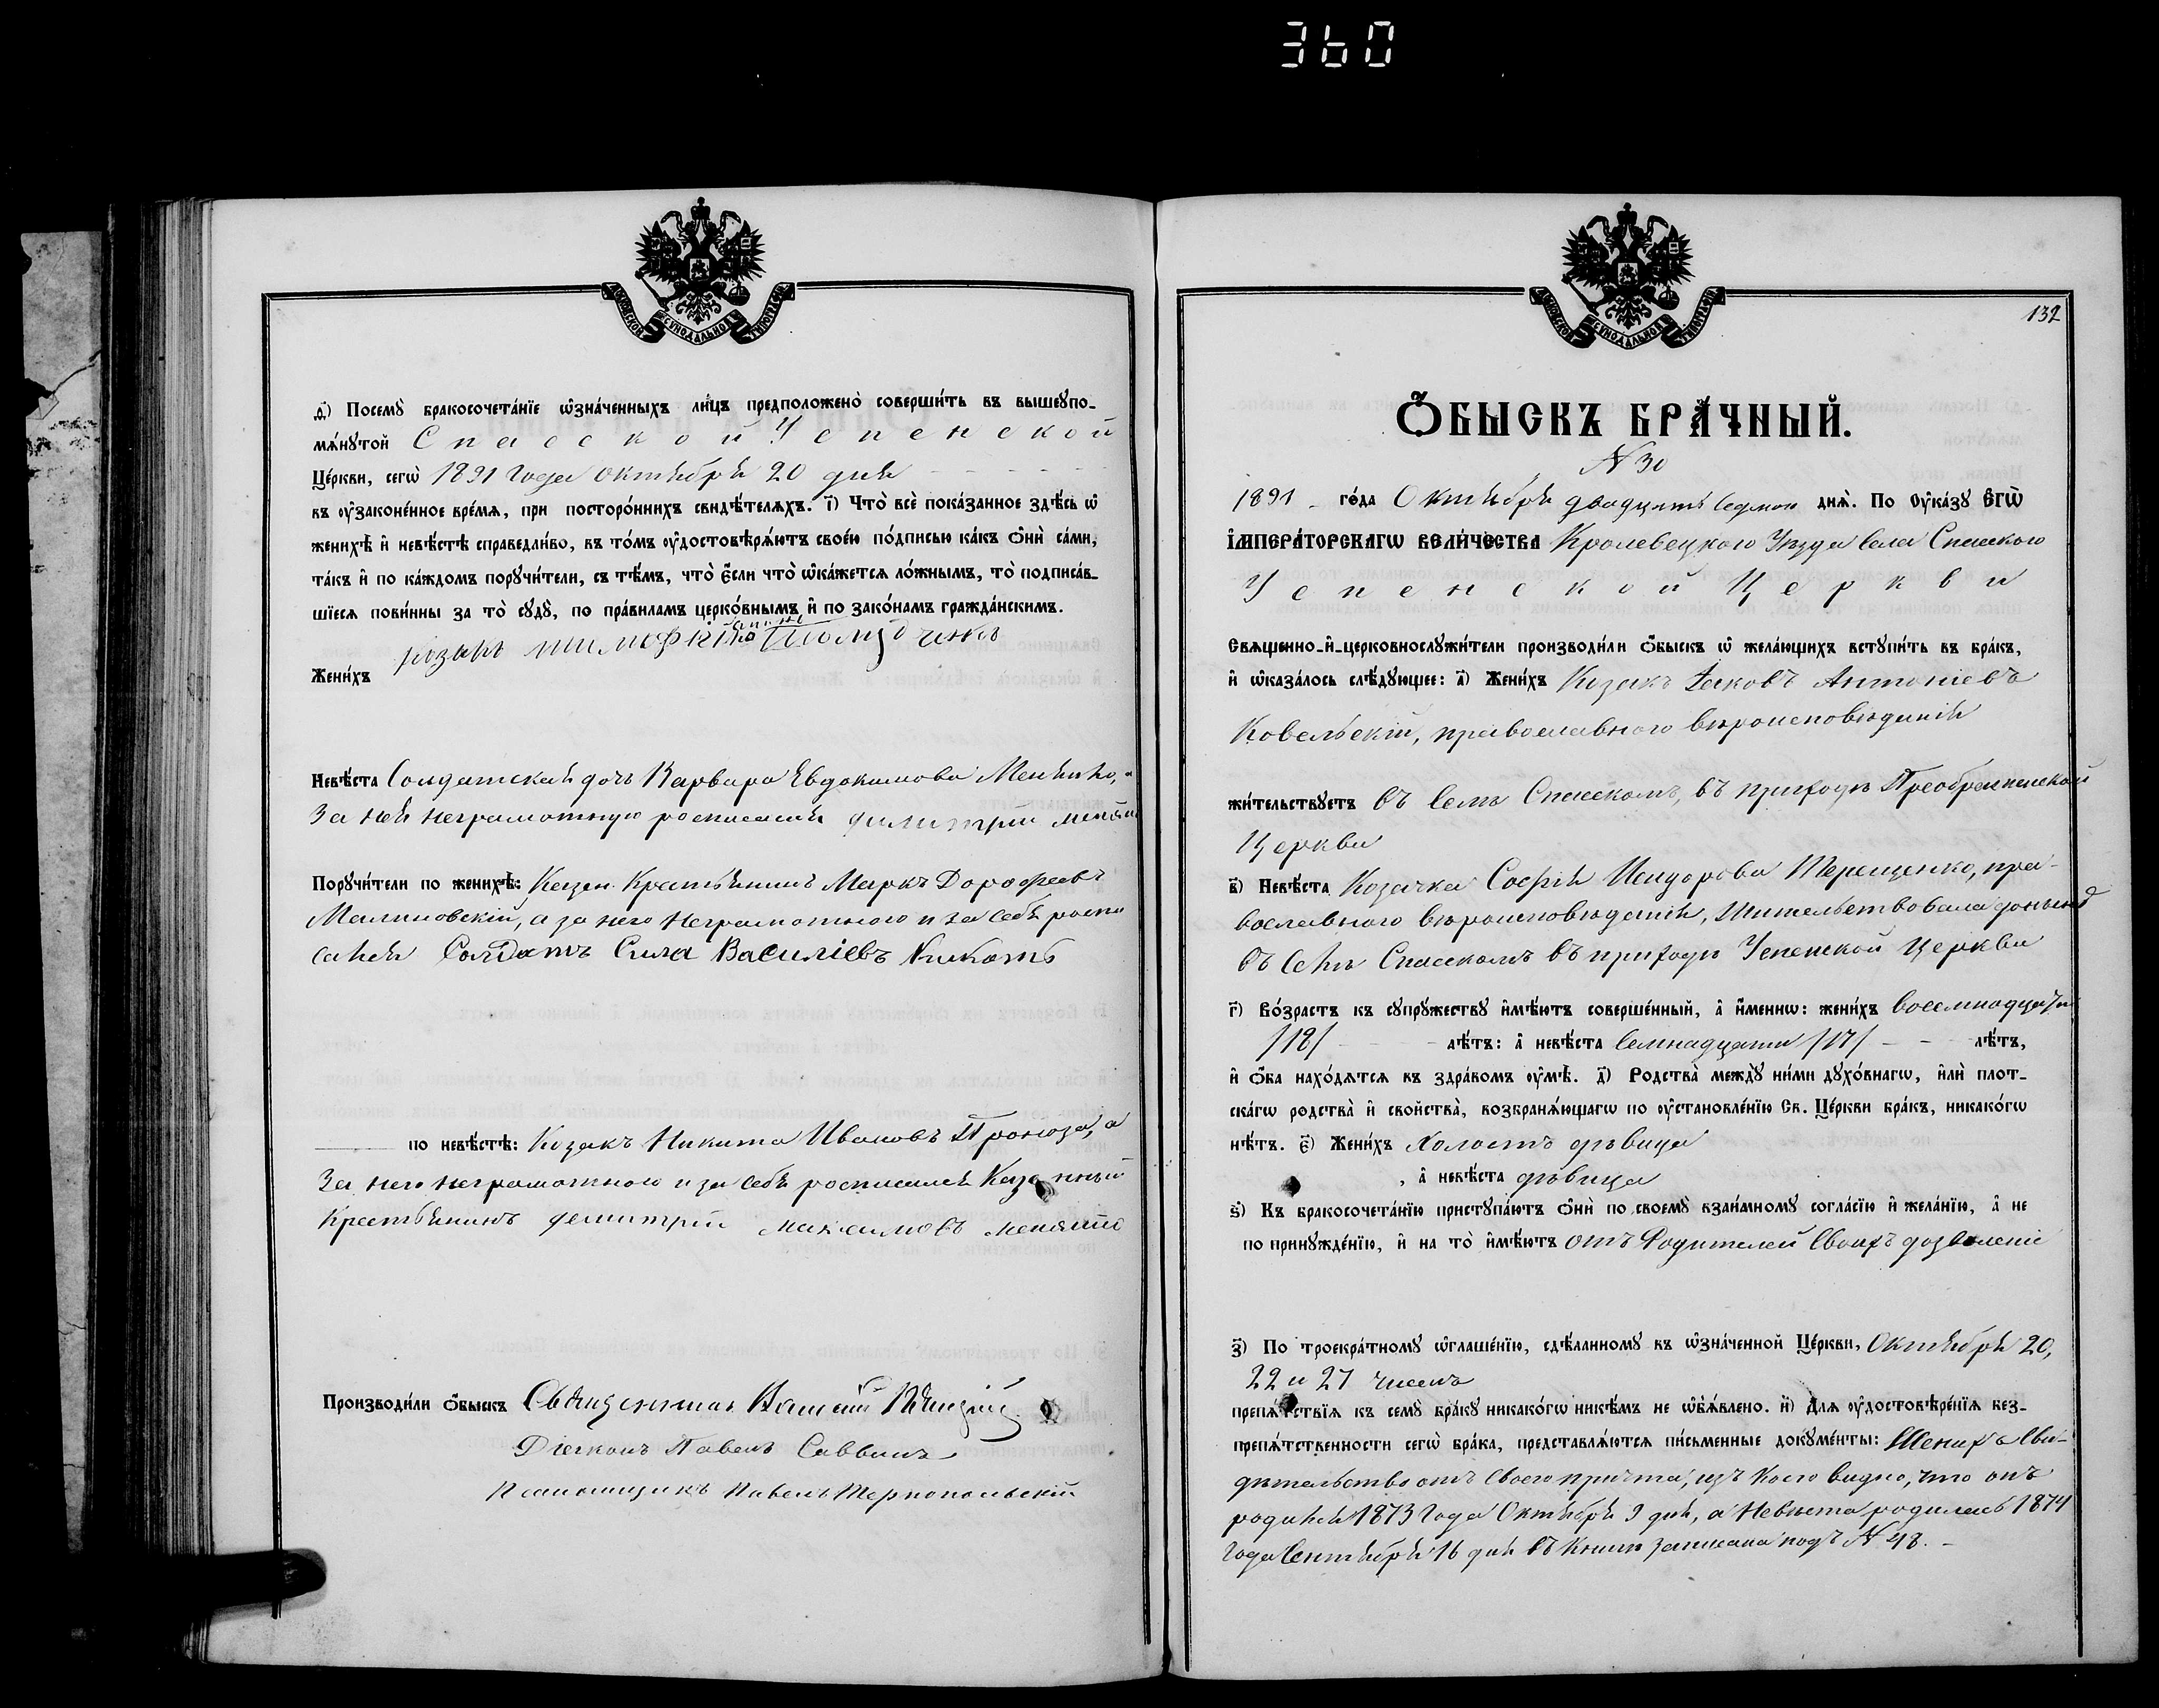 360
МОСКОВСКОЙ СУНОДАЛЬНОЙ ТИПОГРАФІИ
ѳ҃) Посемꙋ̀ бракосочета́нїе ѡ҆зна́ченныхъ ли́цъ предположено̀ соверши́ть въ вышеꙋпо-
мѧ́нꙋтой Спасской Успенской
Це́ркви, сегѡ̀ 1891 года Октября 20 дня
въ ᲂу҆законе́нное вре́мѧ, при посторо́ннихъ свидѣ́телѧхъ. і҃) Что̀ всѐ пока́занное здѣ́сь ѡ҆
женихѣ̀ и҆ невѣ́стѣ справедли́во, въ то́мъ ᲂу҆достовѣрѧ́ютъ свое́ю по́дписью ка́къ ѻ҆нѝ са́ми,
та́къ и҆ по ка́ждомъ порꙋчи́тели, съ тѣ́мъ, что̀ є҆́сли что̀ ѡ҆ка́жетсѧ ло́жнымъ, то̀ подписа́в-
шїесѧ пови́нны за то̀ сꙋдꙋ̀, по пра́виламъ церко́внымъ и҆ по зако́намъ гражда́нскимъ.
Жени́хъ козакъ тимофѣй
Невѣ́ста Солдатская дочь Варвара Евдокимова Меняйло, а
За нея неграмотную росписался димитрій меняйло
Порꙋчи́тели по женихѣ̀: Казен. Крестьянинъ Маркъ Дорофеевъ
Малиновскій, а за него неграмотного и за себя роспи
сался Солдатъ Сила Василіевъ Кикоть
по невѣ́стѣ: Козакъ Никита Ивановъ Прокоза, а
За него неграмотного и за себя росписался Казенный
Крестьянинъ демитрій максимовъ меняйло
Производи́ли ѻ҆́быскъ Священникъ Василій
Діаконъ Павелъ Саввинъ
Псаломщикъ Павелъ Тернопольскій
МОСКОВСКОЙ СУНОДАЛЬНОЙ ТИПОГРАФІИ
132
Ѻ҆́БЫСКЪ БРА́ЧНЫЙ.
№ 30
1891 го́да Октября двадцать седмого днѧ̀. По ᲂу҆ка́зꙋ Є҆гѡ̀
І҆МПЕРА́ТОРСКАГѠ ВЕЛИ́ЧЕСТВА Кролевецкого Уѣзда села Спасского
Успенской Церкви
Свѧщенно-и҆-церковнослꙋжи́тели производи́ли ѻ҆́быскъ ѡ҆ жела́ющихъ встꙋпи́ть въ бра́къ,
и҆ ѡ҆каза́лось слѣ́дꙋющее: а҃) Жени́хъ Козакъ Іаковъ Антоніевъ
Ковельскій, православного вѣроисповѣданія
жи́тельствꙋетъ въ селѣ Спасскомъ, въ приходѣ Преображенской
Церкви
в҃) Невѣ́ста Козачка Софія Исидорова Терещенко, пра-
вославного вѣроисповѣданія, жительствовала донынѣ
въ селѣ Спасскомъ въ приходѣ Успенской Церкви
г҃) Во́зрастъ къ сꙋпрꙋ́жествꙋ и҆мѣ́ютъ соверше́нный, а҆ и҆́меннѡ: жени́хъ восемнадцати
/18/ лѣ́тъ: а҆ невѣ́ста семнадцати /17/ лѣ́тъ,
и҆ ѻ҆́ба нахо́дѧтсѧ въ здра́вомъ ᲂу҆мѣ̀. д҃) Родства̀ междꙋ̀ ни́ми дꙋхо́внагѡ, и҆лѝ плот-
ска́гѡ родства̀ и҆ свойства̀, возбранѧ́ющагѡ по ᲂу҆становле́нїю Св. Це́ркви бра́къ, никако́гѡ
нѣ́тъ. є҃) Жени́хъ Холостъ дѣвица
, а҆ невѣ́ста дѣвица
ѕ҃) Къ бракосочета́нїю пристꙋпа́ютъ ѻ҆нѝ по своемꙋ̀ взаи́мномꙋ согла́сїю и҆ жела́нїю, а҆ не
по принꙋжде́нїю, и҆ на то̀ и҆мѣ́ютъ отъ Родителей своихъ дозволеніе
з҃) По троекра́тномꙋ ѡ҆глаше́нїю, сдѣ́ланномꙋ въ ѡ҆зна́ченной Це́ркви, Октября 20,
22 и 27 числъ
препѧ́тствїѧ къ семꙋ̀ бра́кꙋ никако́гѡ никѣ́мъ не ѡ҆б̾ѧ́влено. и҃) Длѧ ᲂу҆достовѣре́нїѧ без-
препѧ́тственности сегѡ̀ бра́ка, представлѧ́ютсѧ пи́сьменные докꙋме́нты: Женихъ сви-
дѣтельство отъ своего причта, изъ коего видно, что онъ
родился 1873 года Октября 9 дня, а невѣста родилась 1874
года Сентября 16 дня въ книгѣ записана подъ № 48.